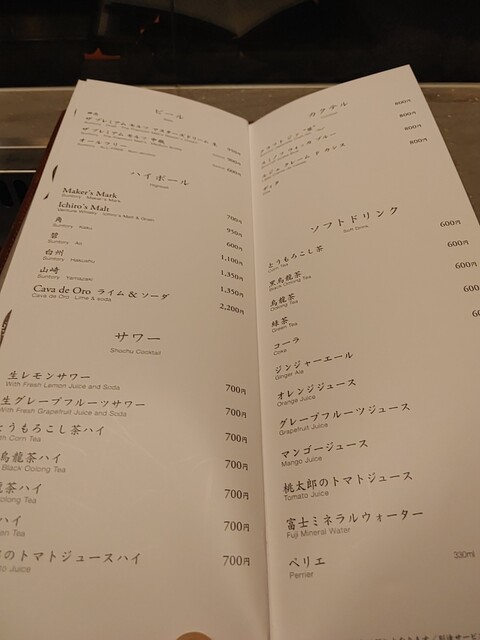 ビール
ザ プレミアム モルツ マスターズドリーム 生
ザ プレミアム モルツ 中瓶
オールフリー
ハイボール
Highball
Maker's Mark
Suntory Maker's Mark
700円
Ichiro's Malt
Venture Whisky Ichiro's Malt & Grain
950円
角
Suntory Kaku
600円
碧
Suntory Ao
1,100円
白州
Suntory Hakushu
1,350円
山崎
Suntory Yamazaki
1,350円
Cava de Oro ライム & ソーダ
Cava de Oro Lime & soda
2,200円
サワー
Shochu Cocktail
生レモンサワー
With Fresh Lemon Juice and Soda
700円
生グレープフルーツサワー
With Fresh Grapefruit Juice and Soda
700円
とうもろこし茶ハイ
With Corn Tea
700円
烏龍茶ハイ
Black Oolong Tea
700円
龍茶ハイ
Oolong Tea
700円
ハイ
en Tea
700円
のトマトジュースハイ
to Juice
700円
カクテル
800円
800円
800円
ソフトドリンク
Soft Drink
とうもろこし茶
Corn Tea
600円
黒烏龍茶
Black Oolong Tea
600円
烏龍茶
Oolong Tea
600円
緑茶
Green Tea
60
コーラ
Coke
ジンジャーエール
Ginger Ale
オレンジジュース
Orange Juice
グレープフルーツジュース
Grapefruit Juice
マンゴージュース
Mango Juice
桃太郎のトマトジュース
Tomato Juice
富士ミネラルウォーター
Fuji Mineral Water
ペリエ
Perrier
330ml